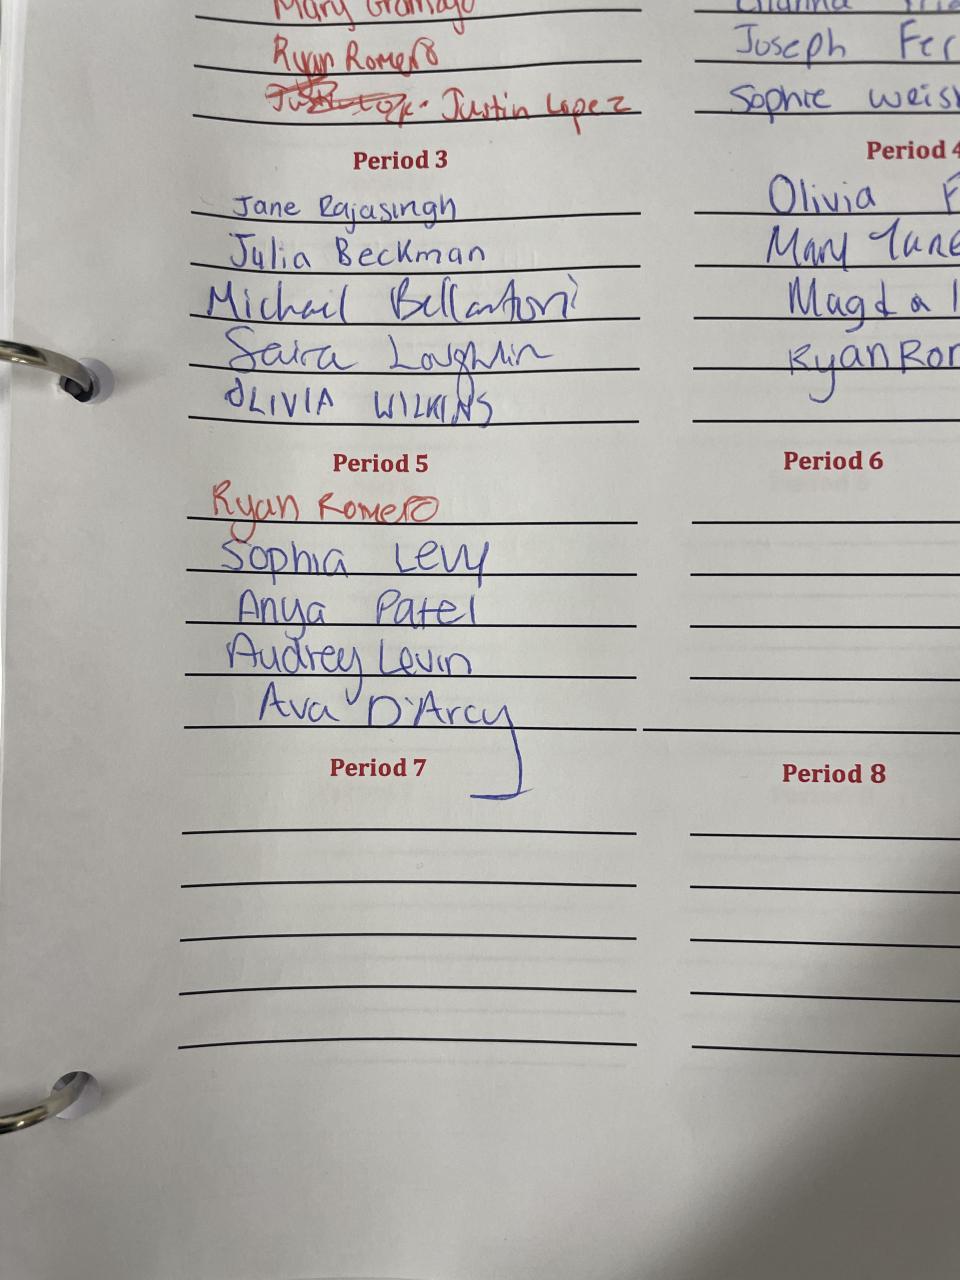 Mary Gramajo
Ryan Romero
Justin Lopez
Joseph Fer
Sophie Weish
Period 3
Jane Rajasingh
Julia Beckman
Michael Bellantoni
Saira Loughlin
OLIVIA WILKINS
Period 4
Olivia F
Mary Jane
Magda
Ryan Rom
Period 5
Ryan Romero
Sophia Levy
Anya Patel
Audrey Levin
Ava D'Arcy
Period 6
Period 7
Period 8